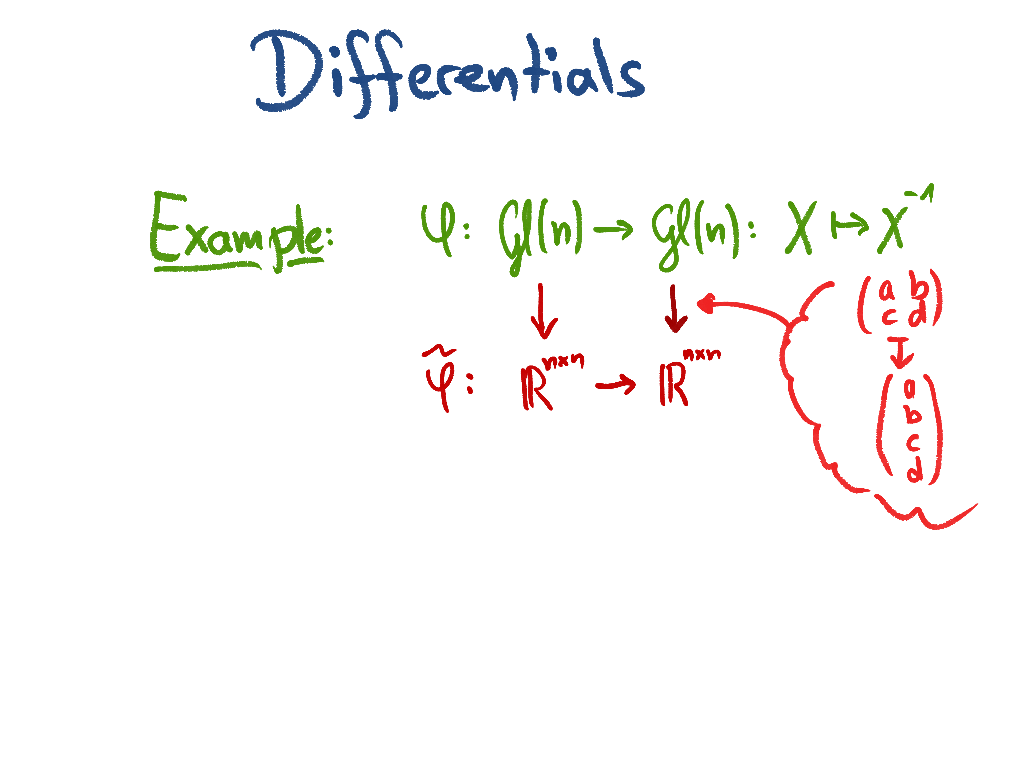 Differentials
Example: φ: Gl(n) → Gl(n): X ↦ X⁻¹
↓ ↓
φ̃: ℝⁿˣⁿ → ℝⁿˣⁿ
(a b
c d)
↧
(a
b
c
d)